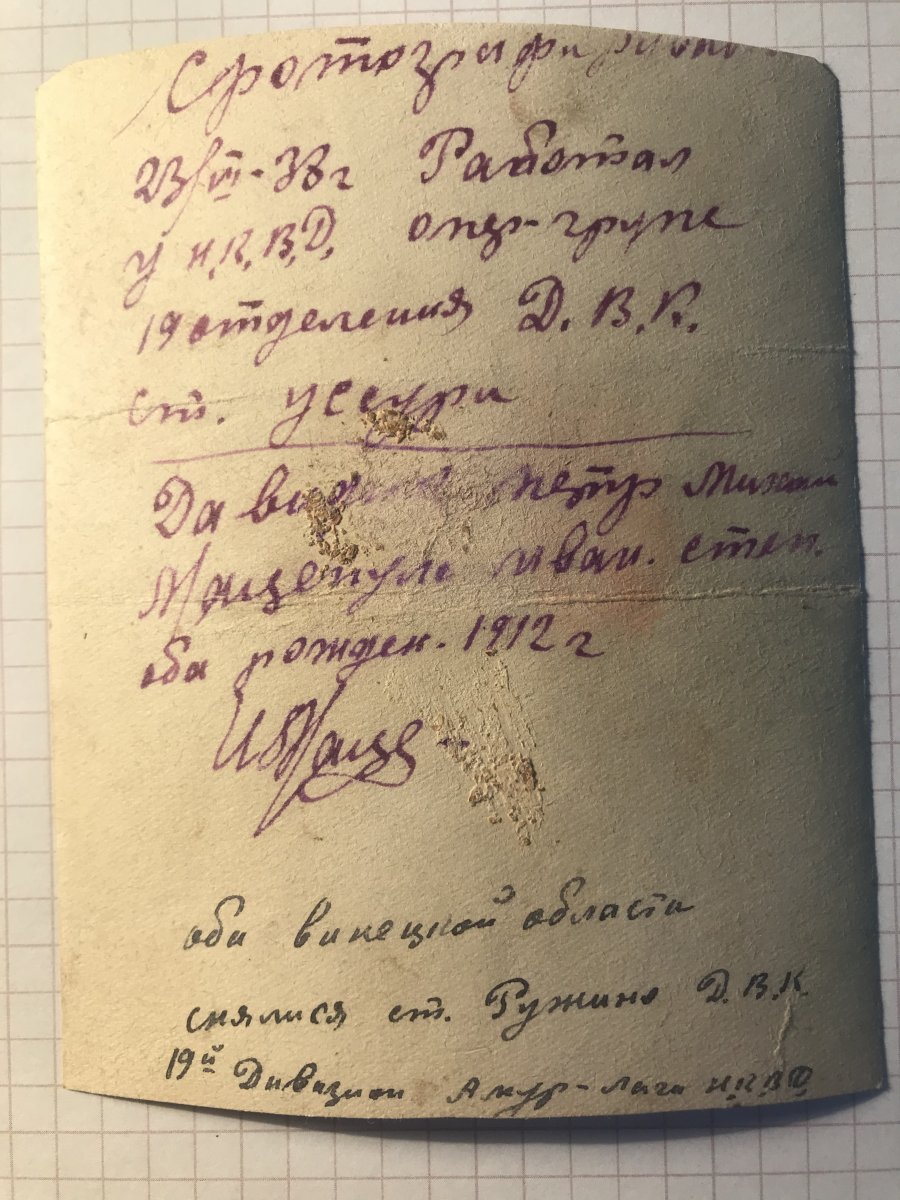 Сфотографирован
23/VI-38г Работал
у Н.К.В.Д. опер-групе
19 отделения Д.В.К.
ст. Уссури
Петр Михаил
Иван. Степ.
оба рожден. 1912 г
оба винецкой области
снялися ст. Ружино Д.В.К.
19й Дивизион Амур-лага Н.К.В.Д.